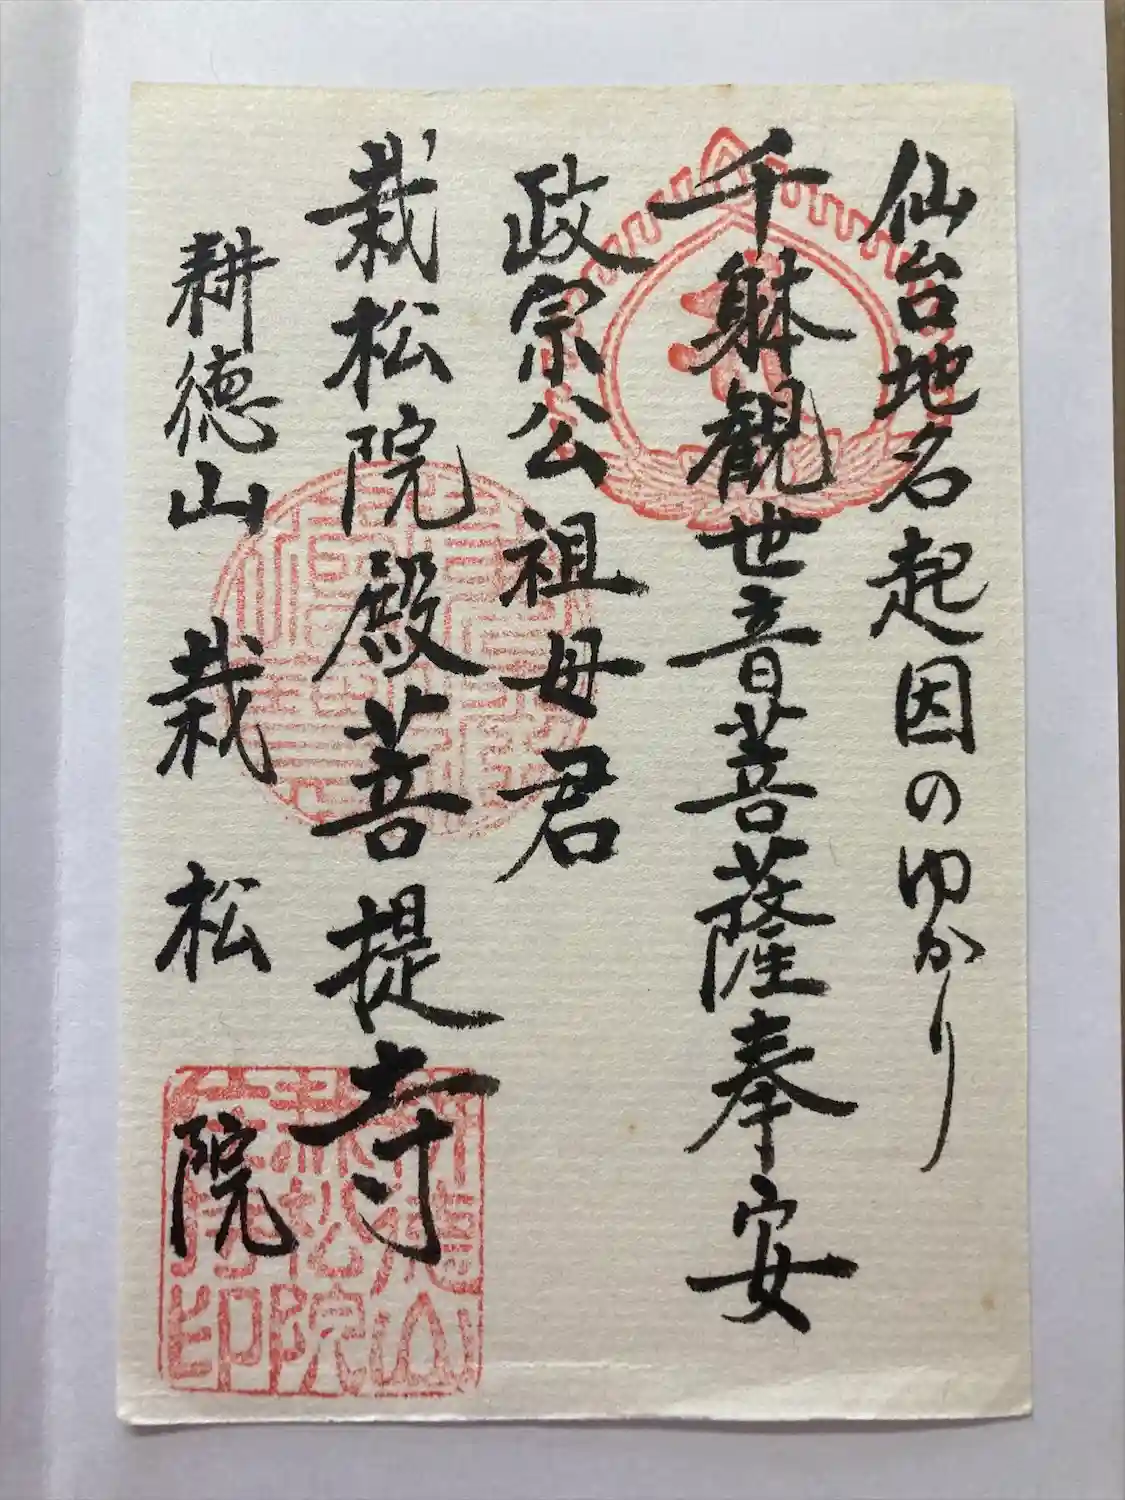 仙台地名起因のゆかり
千躰観世音菩薩奉安
政宗公祖母君
栽松院殿菩提寺
耕徳山栽松院